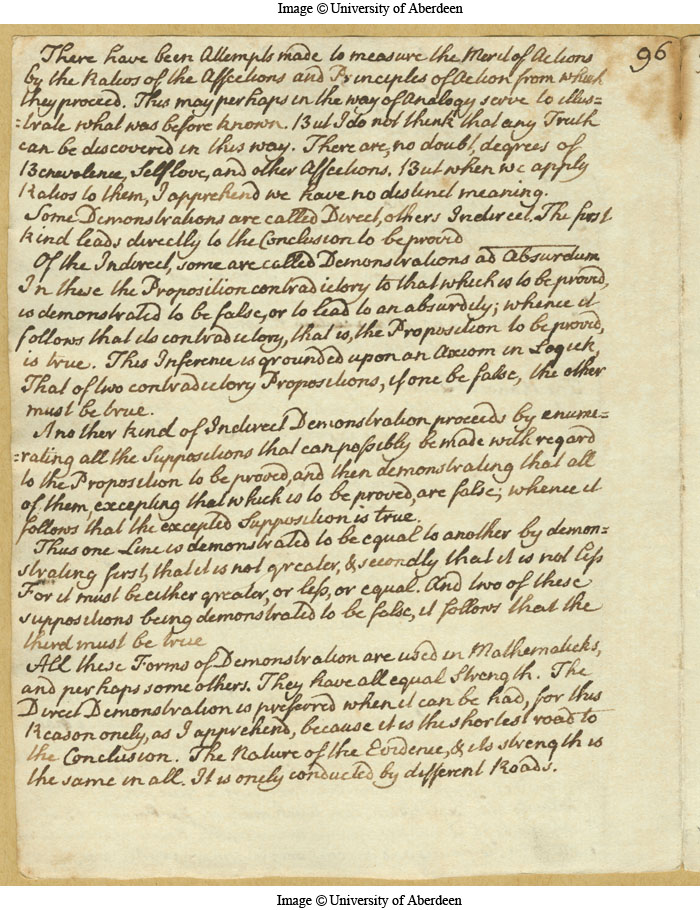 Image © University of Aberdeen
96
There have been Attempts made to measure the Merit of Actions
by the Ratios of the Affections and Principles of Action from which
they proceed. This may perhaps in the way of Analogy serve to illus=
=trate what was before known. But I do not think that any Truth
can be discovered in this way. There are, no doubt, degrees of
Benevolence, Self love, and other Affections. But when we apply
Ratios to them, I apprehend we have no distinct meaning.
Some Demonstrations are called Direct, others Indirect. The first
kind leads directly to the Conclusion to be provd
Of the Indirect, some are called Demonstrations ad Absurdum
In these the Proposition contradictory to that which is to be proved,
is demonstrated to be false, or to lead to an absurdity; whence it
follows that its contradictory, that is, the Proposition to be proved,
is true. This Inference is grounded upon an Axiom in Logick,
That of two contradictory Propositions, if one be false, the other
must be true.
Another kind of Indirect Demonstration proceeds by enume=
=rating all the Suppositions that can possibly be made with regard
to the Proposition to be proved, and then demonstrating that all
of them, excepting that which is to be proved, are false; whence it
follows that the excepted Supposition is true.
Thus one Line is demonstrated to be equal to another by demon=
strating first, that it is not greater, & secondly that it is not less
For it must be either greater, or less, or equal. And two of these
suppositions being demonstrated to be false, it follows that the
third must be true
All these Forms of Demonstration are used in Mathematicks,
and perhaps some others. They have all equal Strength. The
Direct Demonstration is preferred when it can be had, for this
Reason onely, as I apprehend, because it is the shortest road to
the Conclusion. The Nature of the Evidence, & its strength is
the same in all. It is onely conducted by different Roads.
Image © University of Aberdeen